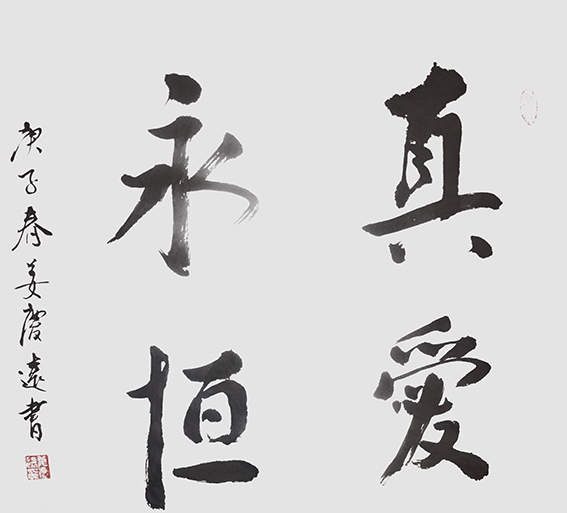 真愛
永恒
庚子春姜慶遠書